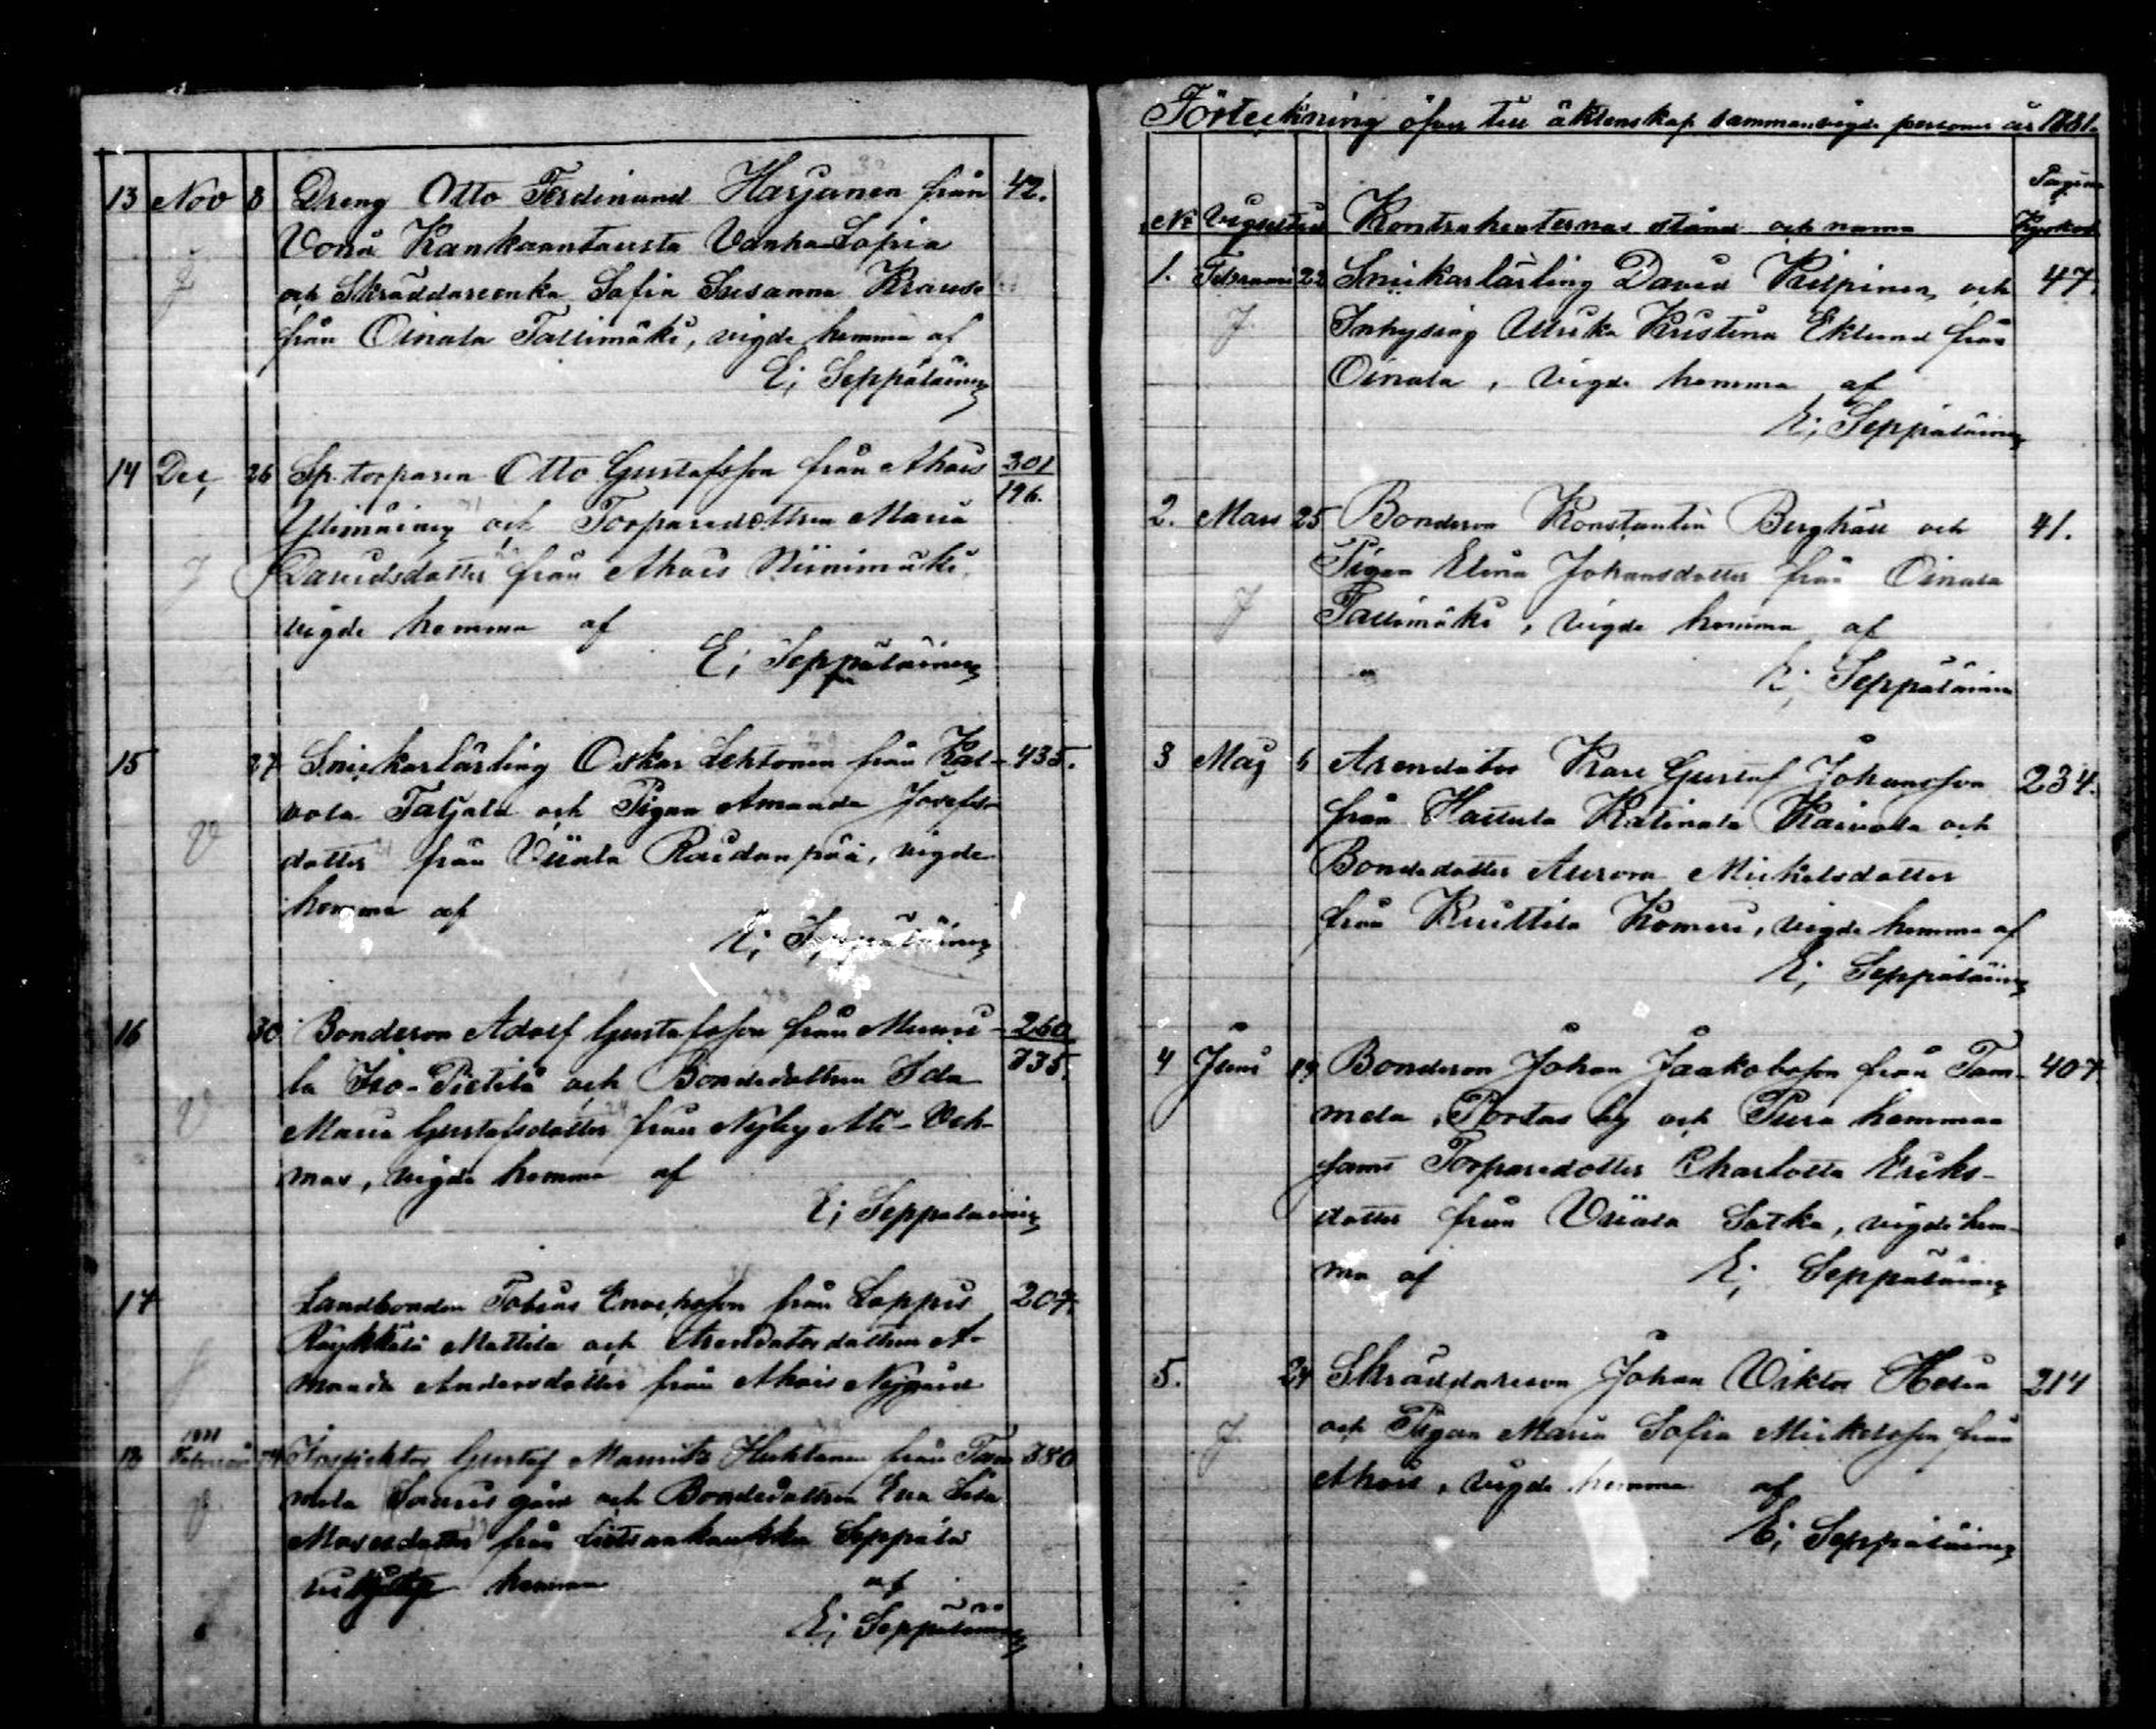 13 Nov 8 Dreng Otto Ferdinand Harjanen från 42.
Vånå Kankaantausta Vanha Lapia
och Skräddareenka Sofia Susanna Krause
från Oinala Tallimäki, vigde hemma af
E; Seppäläinen
14 Dec, 26 Sp. torparen Otto Gustafsson från Ahois 301/196.
Ylimäinen och Torparedottren Maria
Davidsdotter från Ahois Niinimäki,
vigde hemma af
E; Seppäläinen
15 27 Snickarlärling Oskar Lehtonen från Kal- 435.
vola Taljala och Pigan Amanda Josefs-
dotter från Viiala Raudanpää, vigde
hemma af
E; Seppäläinen
16 30 Bondeson Adolf Gustafsson från 260/335.
la Iso-Pietilä och Bondedottren Ida
Maria Gustafsdotter från Nyby Ali-Veh-
mas, vigde hemma af
E; Seppäläinen
17 Landbonden Tobias Enochsson från Loppis 207.
Räyskälä Mattila och Arendatordottren A-
manda Andersdotter från Ahois Nygård
18 Februari 24 Inspektor Gustaf Huhtanen från Tam 380
mela gård och Bondedottren Eva
från Seppälä
hemma af
E; Seppäläinen
Förteckning öfver till äktenskap sammanvigde personer år 1881.
Pagina
No Vigseltid Kontrahenternas stånd och namn Kyrkob
1. Februari 22 Snickarlärling David Kilpinen och 47.
Inhysing Ulrika Kristina Eklund från
Oinala, vigde hemma af
E; Seppäläinen
2. Mars 25 Bondeson Konstantin Berghäll och 41.
Pigan Elina Johansdotter från Oinala
Tallimäki, vigde hemma af
E; Seppäläinen
3 Maj 6 Arendator Karl Gustaf Johansson 234.
från Hattula Katinala Kaivola och
Bondedotter Aurora Mickelsdotter
från Kruttila Komeri, vigde hemma af
E; Seppäläinen
4 Juni 19 Bondeson Johan Jaakobsson från Tam- 407
mela, Portas by och Pura hemman
samt Torparedotter Charlotta Eriks-
dotter från Viiala Satka, vigde hem-
ma af E; Seppäläinen
5. 24 Skräddareson Johan Viktor Helin 214
och Pigan Maria Sofia Mickelsson från
Ahois, vigde hemma af
E; Seppäläinen